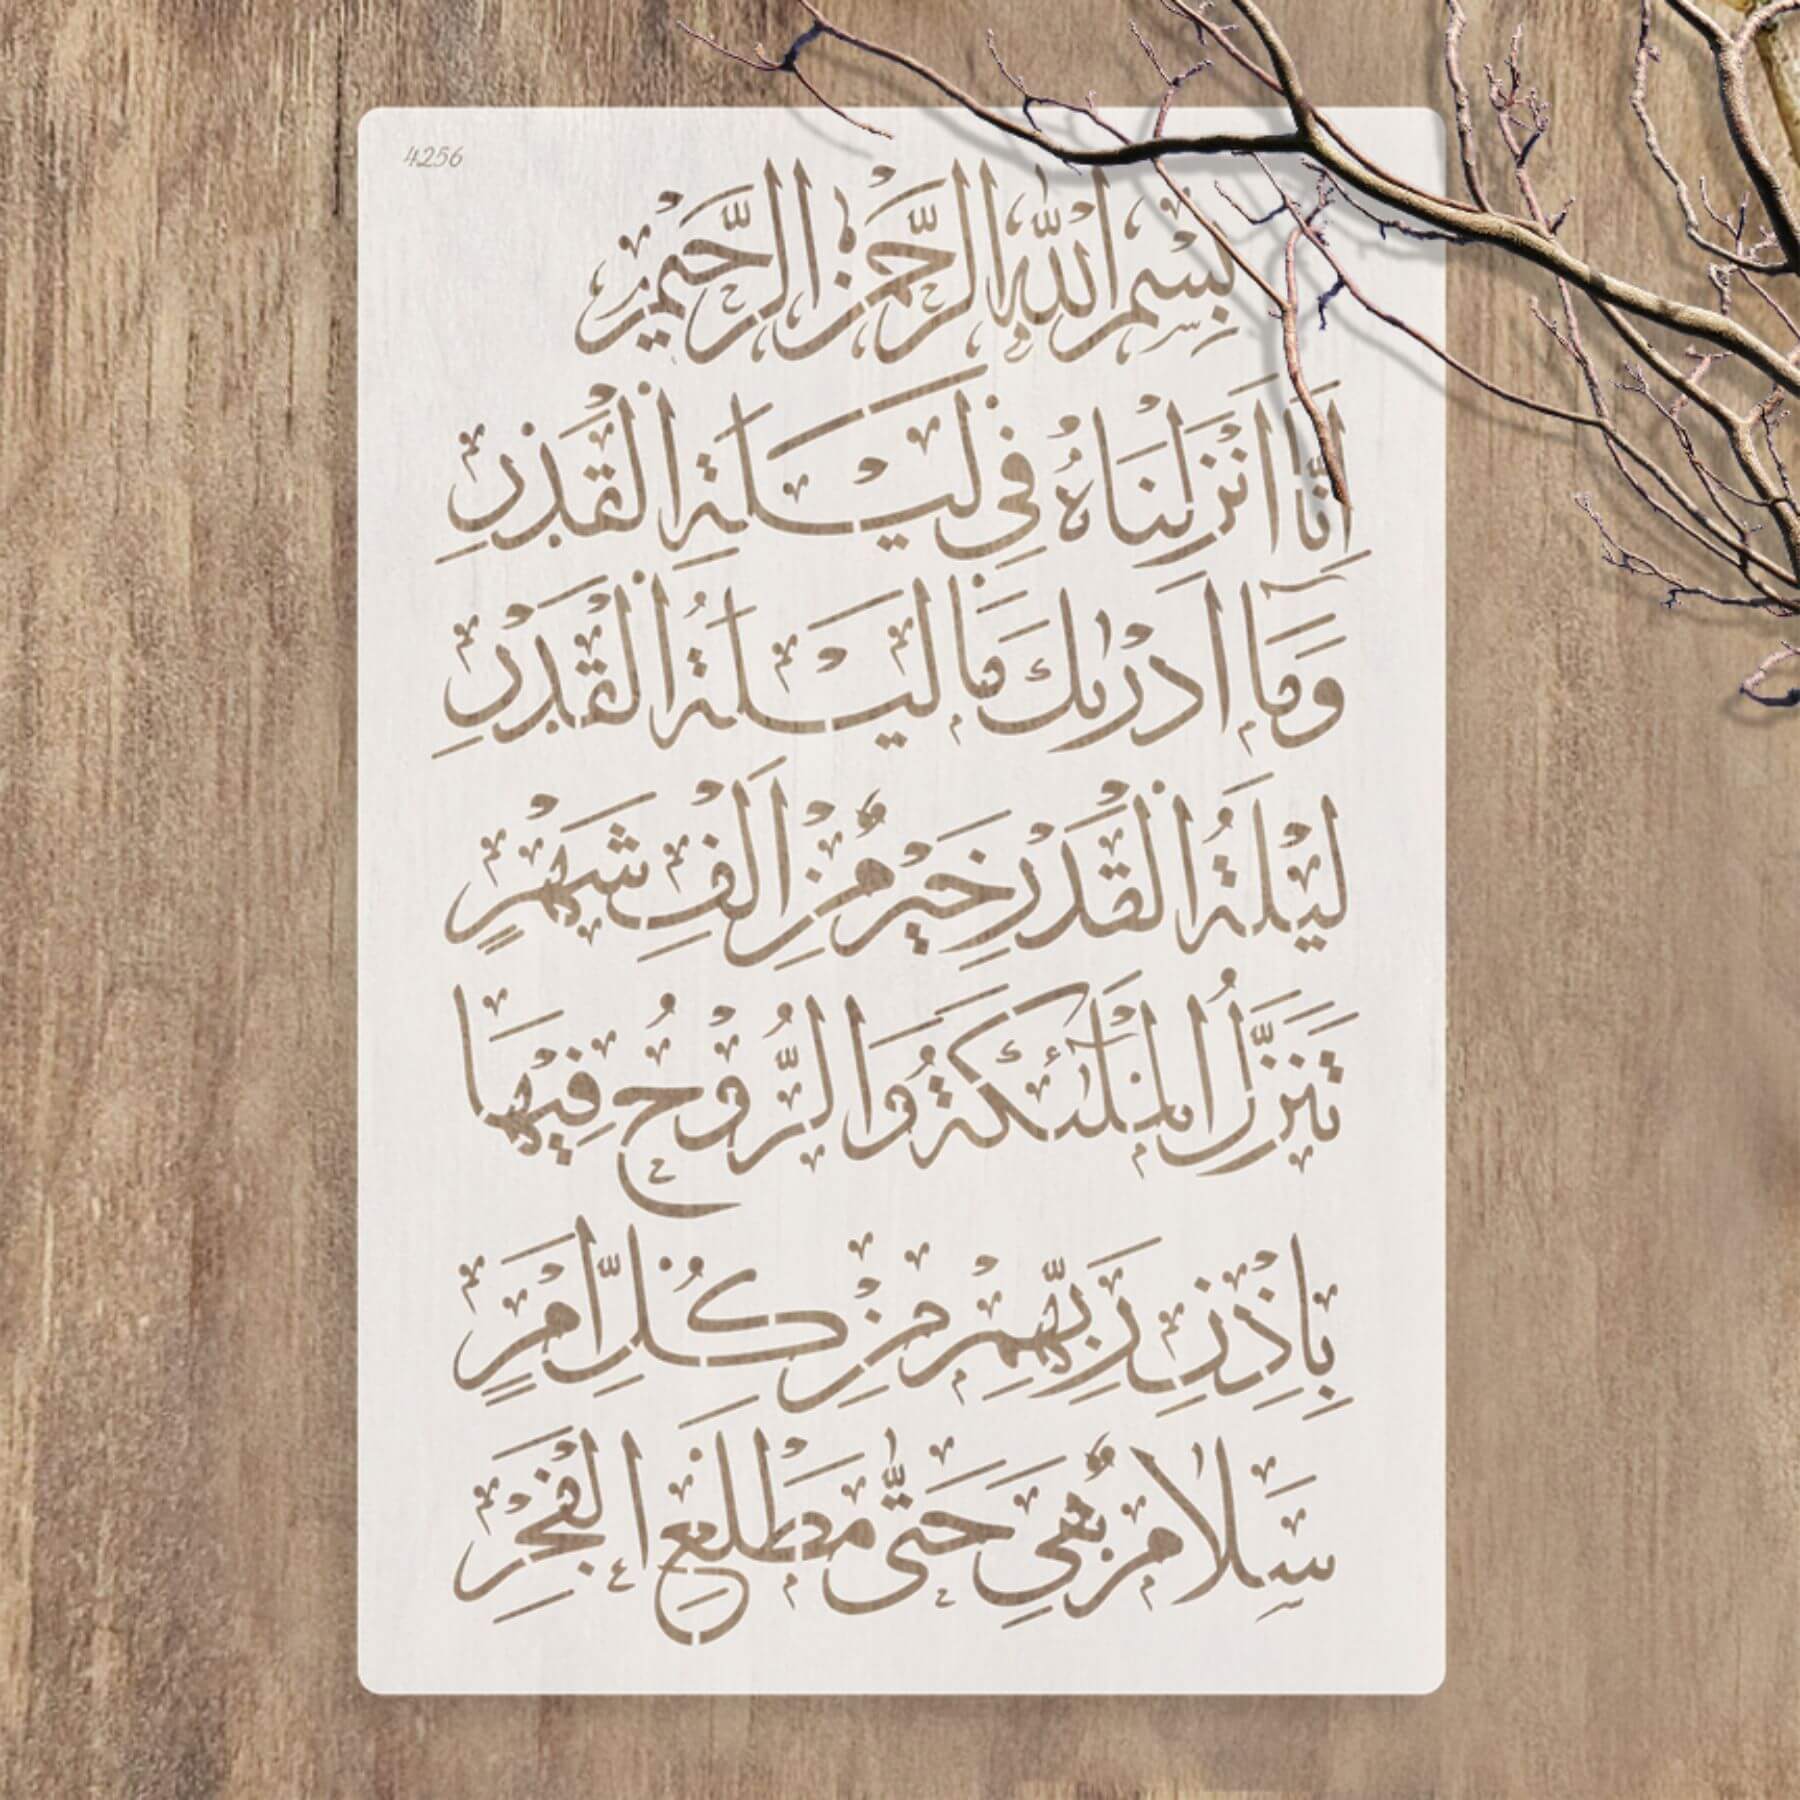 4256
بِسْمِ اللّٰهِ الرَّحْمٰنِ الرَّحِيْمِ
اِنَّا اَنْزَلْنَاهُ فِي لَيْلَةِ الْقَدْرِ
وَمَآ اَدْرٰيكَ مَا لَيْلَةُ الْقَدْرِ
لَيْلَةُ الْقَدْرِ خَيْرٌ مِنْ اَلْفِ شَهْرٍ
تَنَزَّلُ الْمَلٰٓئِكَةُ وَالرُّوْحُ فِيْهَا
بِاِذْنِ رَبِّهِمْ مِنْ كُلِّ اَمْرٍ
سَلَامٌ هِيَ حَتّٰى مَطْلَعِ الْفَجْرِ